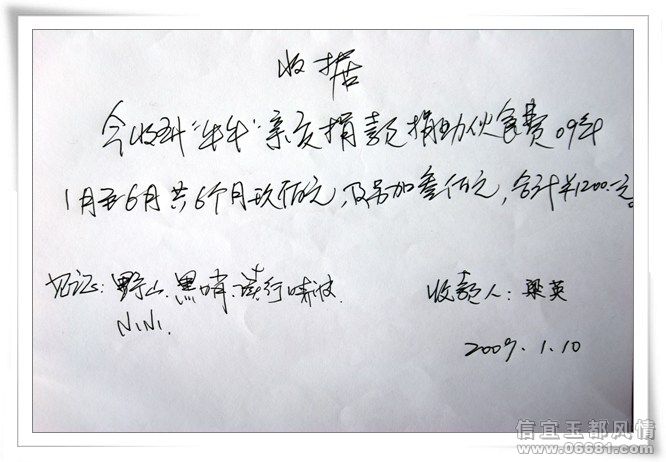 收据
今收到"牛牛"亲友捐款捐助伙食费09年
1月至6月共6个月玖佰元,及另加叁佰元,合计¥1200.-元。
见证:野山.黑哨.读行
收款人:梁英
NiNi.
2009.1.10
信宜玉都风情
www.06681.com